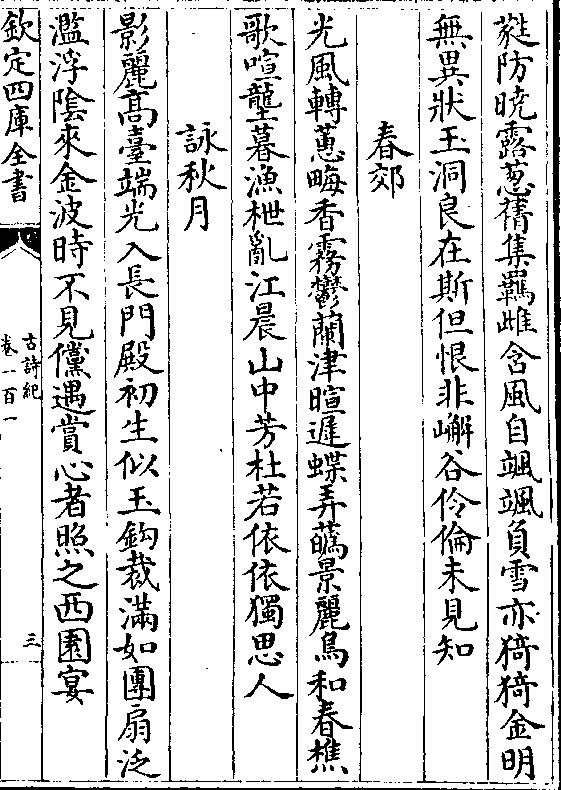 蕤防曉露葱蒨集羈雌含風自颯颯負雪亦猗猗金明
無異狀玉洞良在斯但恨非嶰谷伶倫未見知
春郊
光風轉蕙畹香霧鬱蘭津暄遲蝶弄蘤景麗鳥和春樵
歌喧壟暮漁枻亂江晨山中芳杜若依依獨思人
詠秋月
影麗髙臺端光入長門殿初生似玉鈎裁滿如團扇泛
濫浮陰來金波時不見儻遇賞心者照之西園宴
欽定四庫全書
古詩紀
卷一百一
三